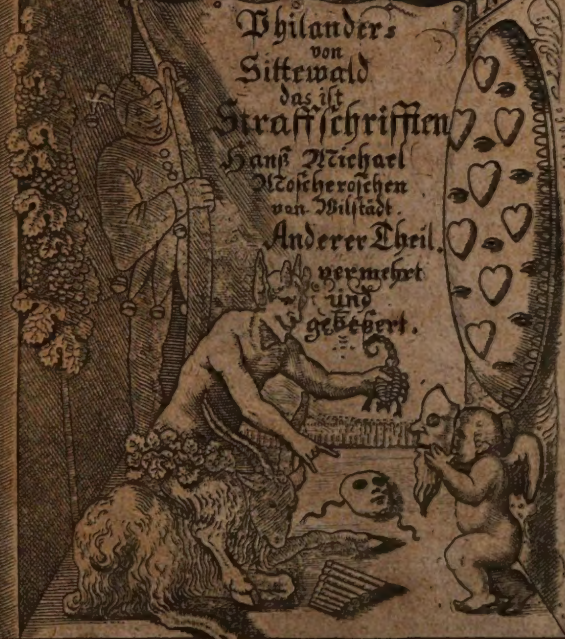 Philanders
von
Sittewald
das ist
Straffschrifften
Hanß Michael
Moscheroschen
von Wilstädt.
Anderer Theil.
vermehrt
und
gebeßert.